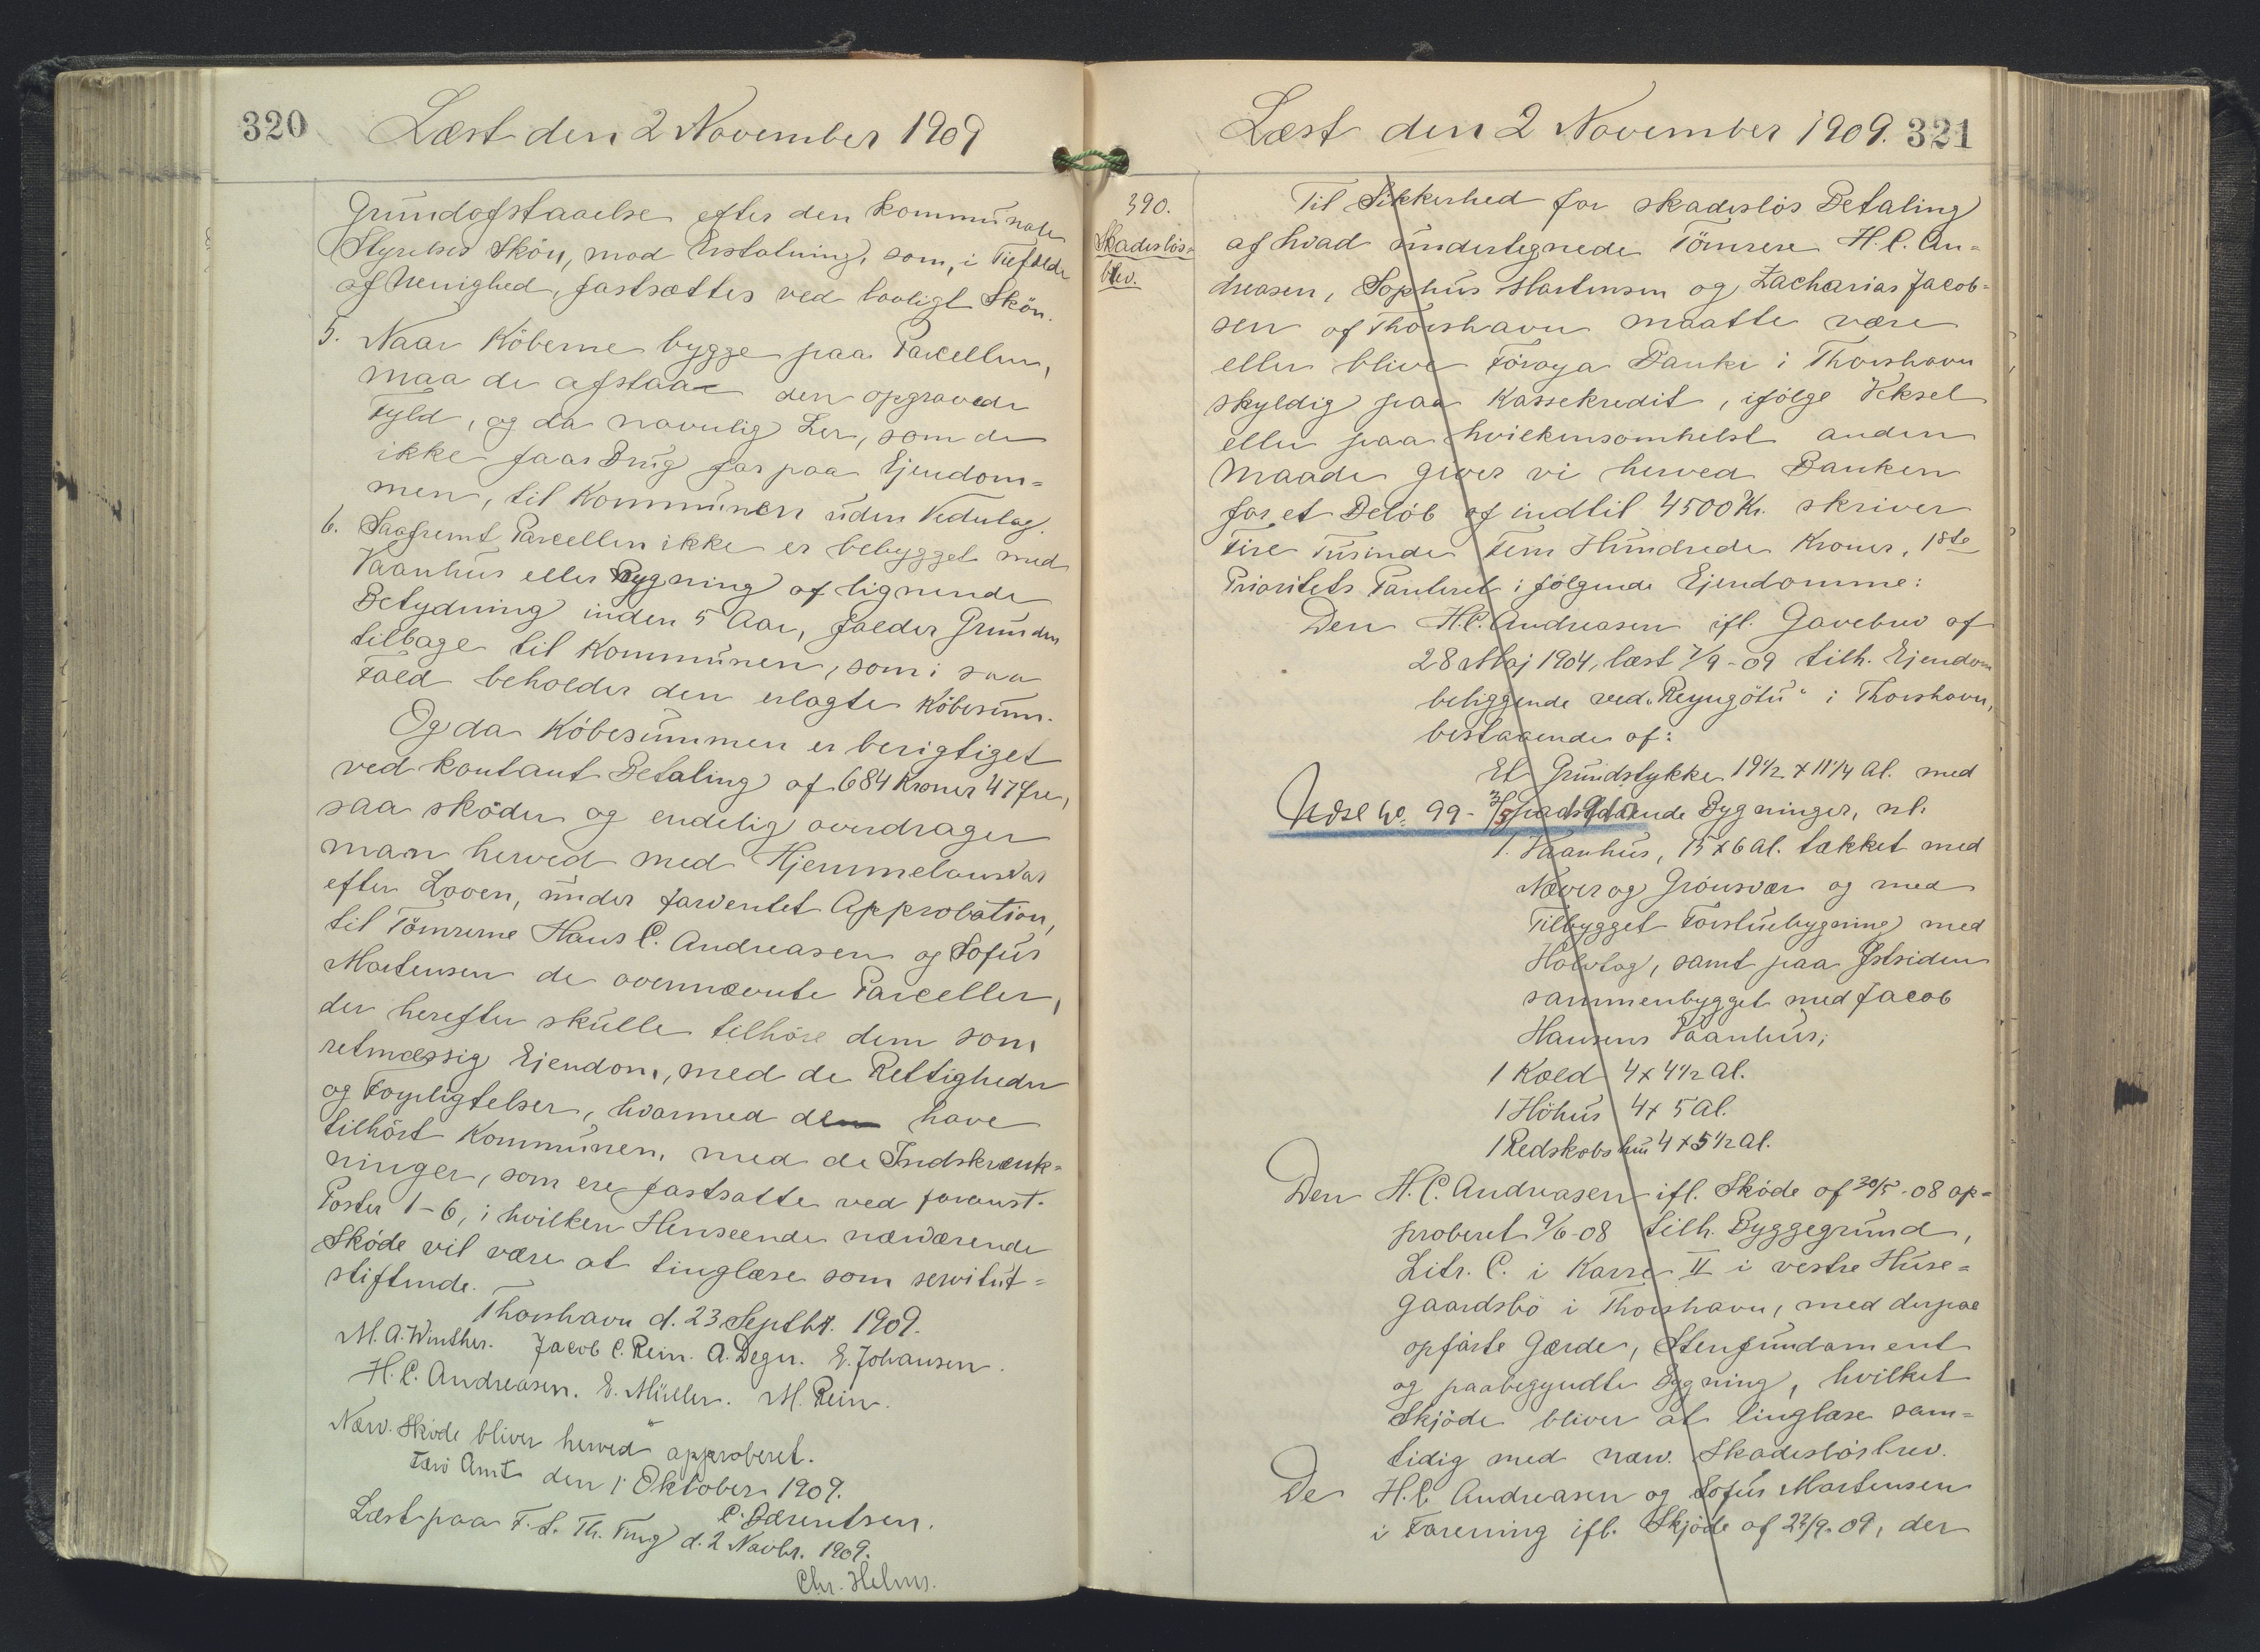 320
Læst den 2 November 1909
Grundafstaaelse efter den kommunale
Styrelses Skön, mod Erstatning, som, i Tilfælde
af Uenighed, fastsættes ved lovligt Skön.
5. Naar Köberne bygge paa Parcellen,
maa de afstaa den opgravede
Fyld, og da navnlig Ler, som de
ikke faar Brug for paa Ejendom=
men, til Kommunen uden Vederlag.
6. Saafremt Parcellen ikke er bebygget med
Vaanhus eller Bygning af lignende
Betydning inden 5 Aar, falder Grunden
tilbage til Kommunen, som i saa
Fald beholder den erlagte Köbesum.
Og da Köbesummen er berigtiget
ved kontant Betaling af 684 Kroner 47 Øre,
saa sköder og endelig overdrager
man herved med Hjemmelansvar
efter Loven, under forventet Approbation,
til Tömrerne Hans C. Andreasen og Sofus
Martensen de ovennævnte Parceller,
der herefter skulle tilhöre dem som
retmæssig Ejendom, med de Rettigheder
og Forpligtelser, hvormed de have
tilhört Kommunen, med de Indskrænk=
ninger, som ere fastsatte ved foranst.
Poster 1-6, i hvilken Henseende nærværende
Sköde vil være at tinglæse som servitut=
stiftende.
Thorshavn d. 23 Septbr. 1909.
M. A. Winther. Jacob C. Rein. A. Degn. E. Johansen.
H. C. Andreasen. E. Müller. M. Rein.
Nærv. Sköde bliver herved approberet.
Færö Amt den 1 Oktober 1909.
C. Bærentsen.
Læst paa F. S. Th. Ting d. 2 Novbr. 1909.
Chr. Helms.
Læst den 2 November 1909. 321
390.
Skadeslös=
brev.
Til Sikkerhed for skadeslös Betaling
af hvad undertegnede Tömrere H. C. An=
dreasen, Sophus Martensen og Zacharias Jacob=
sen af Thorshavn maatte være
eller blive Föroya Banki i Thorshavn
skyldig paa Kassekredit, ifölge Veksel
eller paa hvilkensomhelst anden
Maade giver vi herved Banken
for et Belöb af indtil 4500 Kr. skriver
Fire Tusinde Fem Hundrede Kroner, 1ste
Prioritets Panteret i fölgende Ejendomme:
Den H. C. Andreasen ifl. Gavebrev af
28 Maj 1904, læst 7/9-09 tilh. Ejendom
beliggende ved "Reyngötu" i Thorshavn,
bestaaende af:
Et Grundstykke 19½ x 11¼ Al. med
Udsl. No. 99 - 3/5 1910
paastaaende Bygninger, nl:
1. Vaanhus, 15 x 6 Al. tækket med
Næver og Grönsvær og med
Tilbygget Forstuebygning med
Halvtag, samt paa Østsiden
sammenbygget med Jacob
Hansens Vaanhus;
1 Kold 4 x 4½ Al.
1 Höhus 4 x 5 Al.
1 Redskabshus 4 x 5½ Al.
Den H. C. Andreasen ifl. Sköde af 30/5-08 ap=
proberet 9/6-08 tilh. Byggegrund,
Litr. C. i Karré II i vestre Huse=
gaardsbö i Thorshavn, med derpaa
opförte Gærde, Stenfundament
og paabegyndte Bygning, hvilket
Skjöde bliver at tinglæse sam=
tidig med nærv. Skadeslösbrev.
De H. C. Andreasen og Sofus Martensen
i Forening ifl. Skjöde af 23/9-09, der